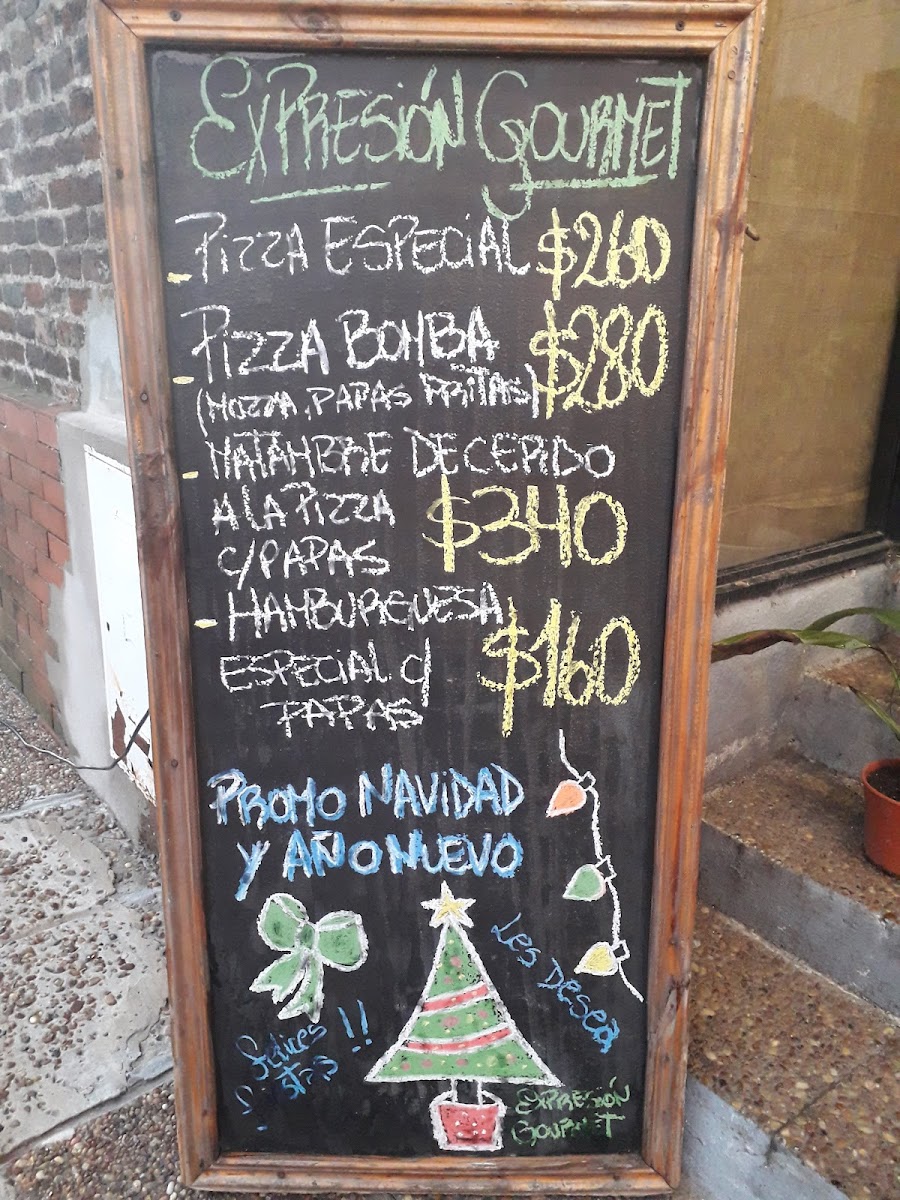 EXPRESIÓN GOURMET
- PIZZA ESPECIAL $260
- PIZZA BOMBA $280
(MOZZA, PAPAS FRITAS)
- MATAMBRE DE CERDO
A LA PIZZA $340
C/PAPAS
- HAMBURGUESA
ESPECIAL C/ $160
PAPAS
PROMO NAVIDAD
Y AÑO NUEVO
LES DESEA
EXPRESIÓN
GOURMET
Felices
!!